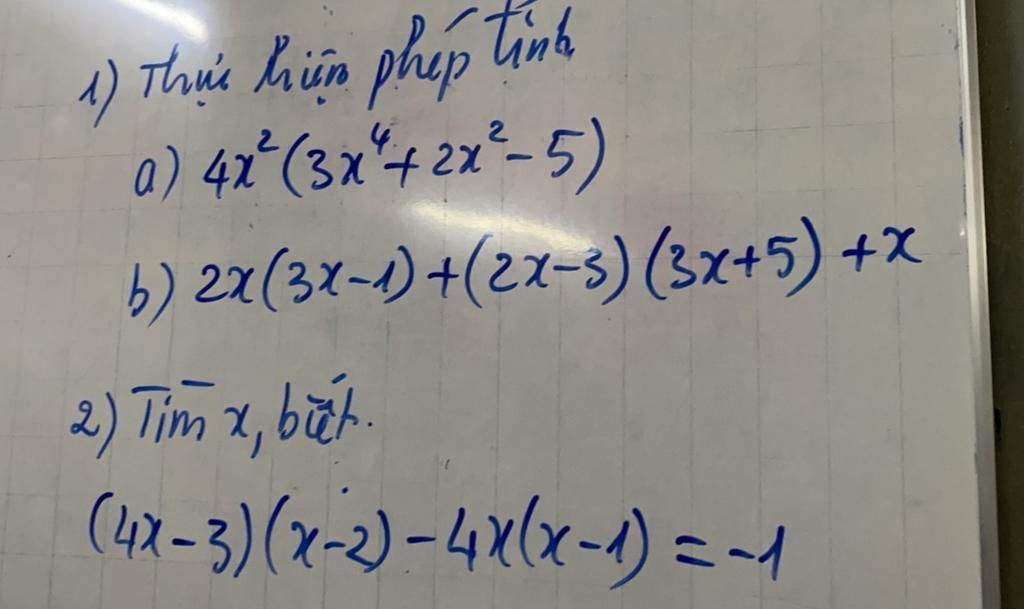 1) Thực hiện phép tính
a) 4x²(3x⁴+2x²-5)
b) 2x(3x-1)+(2x-3)(3x+5)+x
2) Tìm x, biết.
(4x-3)(x-2)-4x(x-1)=-1